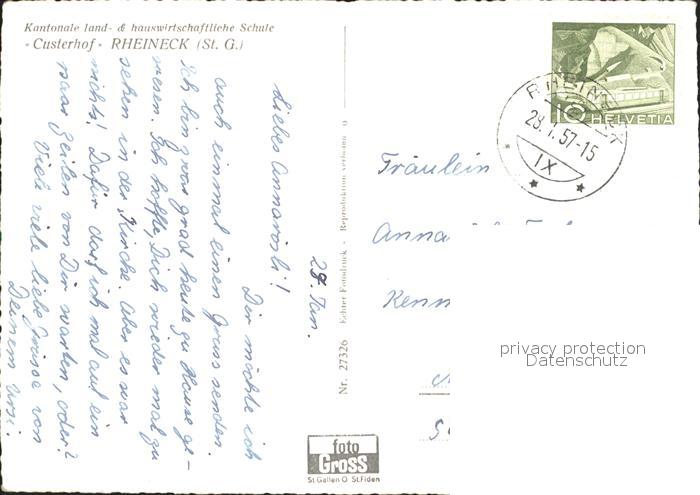 Kantonale land- & hauswirtschaftliche Schule
« Custerhof » RHEINECK (St. G.)
29. Jan.
Liebes Annarösli!
Dir möchte ich
auch einmal einen Gruss senden.
Ich bin grad heute zu Hause ge-
wesen. Ich hoffte, Dich wieder mal zu
sehen in der Kirche. Aber es war
nichts! Dafür darf ich mal auf ein
paar Zeilen von Dir warten, oder?
Viele viele liebe Grüsse von
Deinem Ursi.
Nr. 27326 Echter Fotodruck - Reproduktion verboten
foto
Gross
St.Gallen O St.Fiden
RHEINECK
28.1.57-15
IX
10 HELVETIA
Fräulein
Anna
Kenn
privacy protection
Datenschutz